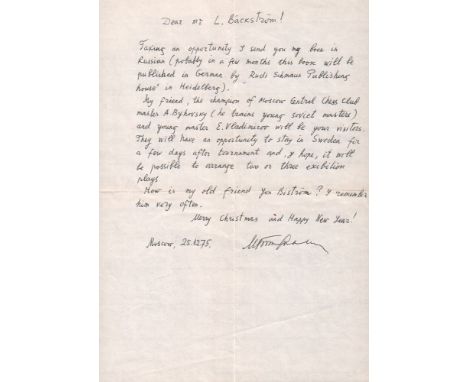 Dear Mr L. Bäckström!
Taking an opportunity I send you my book in
Russian (probably in a few months this book will be
published in German by Rudi Schmaus Publishing
house" in Heidelberg).
My friend, the champion of Moscow Central Chess Club
master A. Bykhovsky (he trains young soviet masters)
and young master E. Vladimirov will be your visitors.
They will have an opportunity to stay in Sweden for
a few days after tournament and, I hope, it will
be possible to arrange two or three exibition
plays.
How is my old friend Biström? I remember
him very often.
Merry Christmas and Happy New Year!
Moscow, 25.12.75.